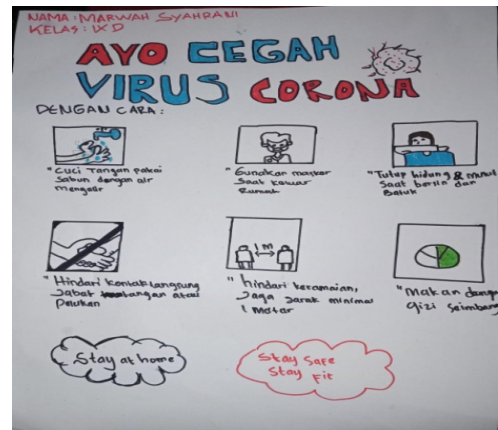 NAMA : MARWAH SYAHRANI
KELAS : IX D
AYO CEGAH
VIRUS CORONA
DENGAN CARA :
"Cuci Tangan pakai
Sabun dengan air
mengalir
"Gunakan masker
Saat keluar
Rumah
"Tutup hidung & mulut
Saat bersin dan
Batuk
"Hindari kontak langsung
Jabat tangan atau
Pelukan
1 M
"hindari keramaian,
Jaga Jarak minimal
1 Meter
"Makan dengan
gizi Seimbang
Stay at home
Stay Safe
Stay Fit